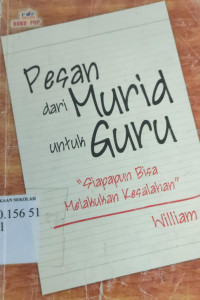 BUKU POP
Pesan
dari Murid
untuk Guru
"Siapapun Bisa
Melakukan Kesalahan"
William
KAAN SEKOLAH
0.156 51
1